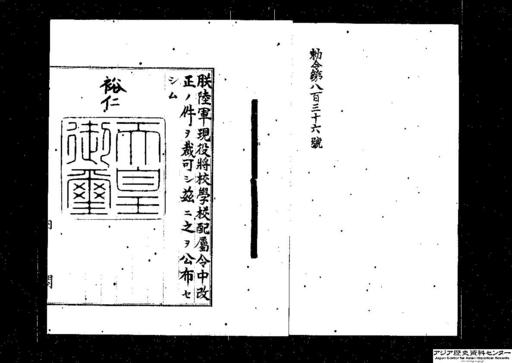 勅令第八百三十六號
朕陸軍現役將校學校配屬令中改
正ノ件ヲ裁可シ茲ニ之ヲ公布セ
シム
裕仁
天皇
御璽
内閣
アジア歴史資料センター
Japan Center for Asian Historical Records